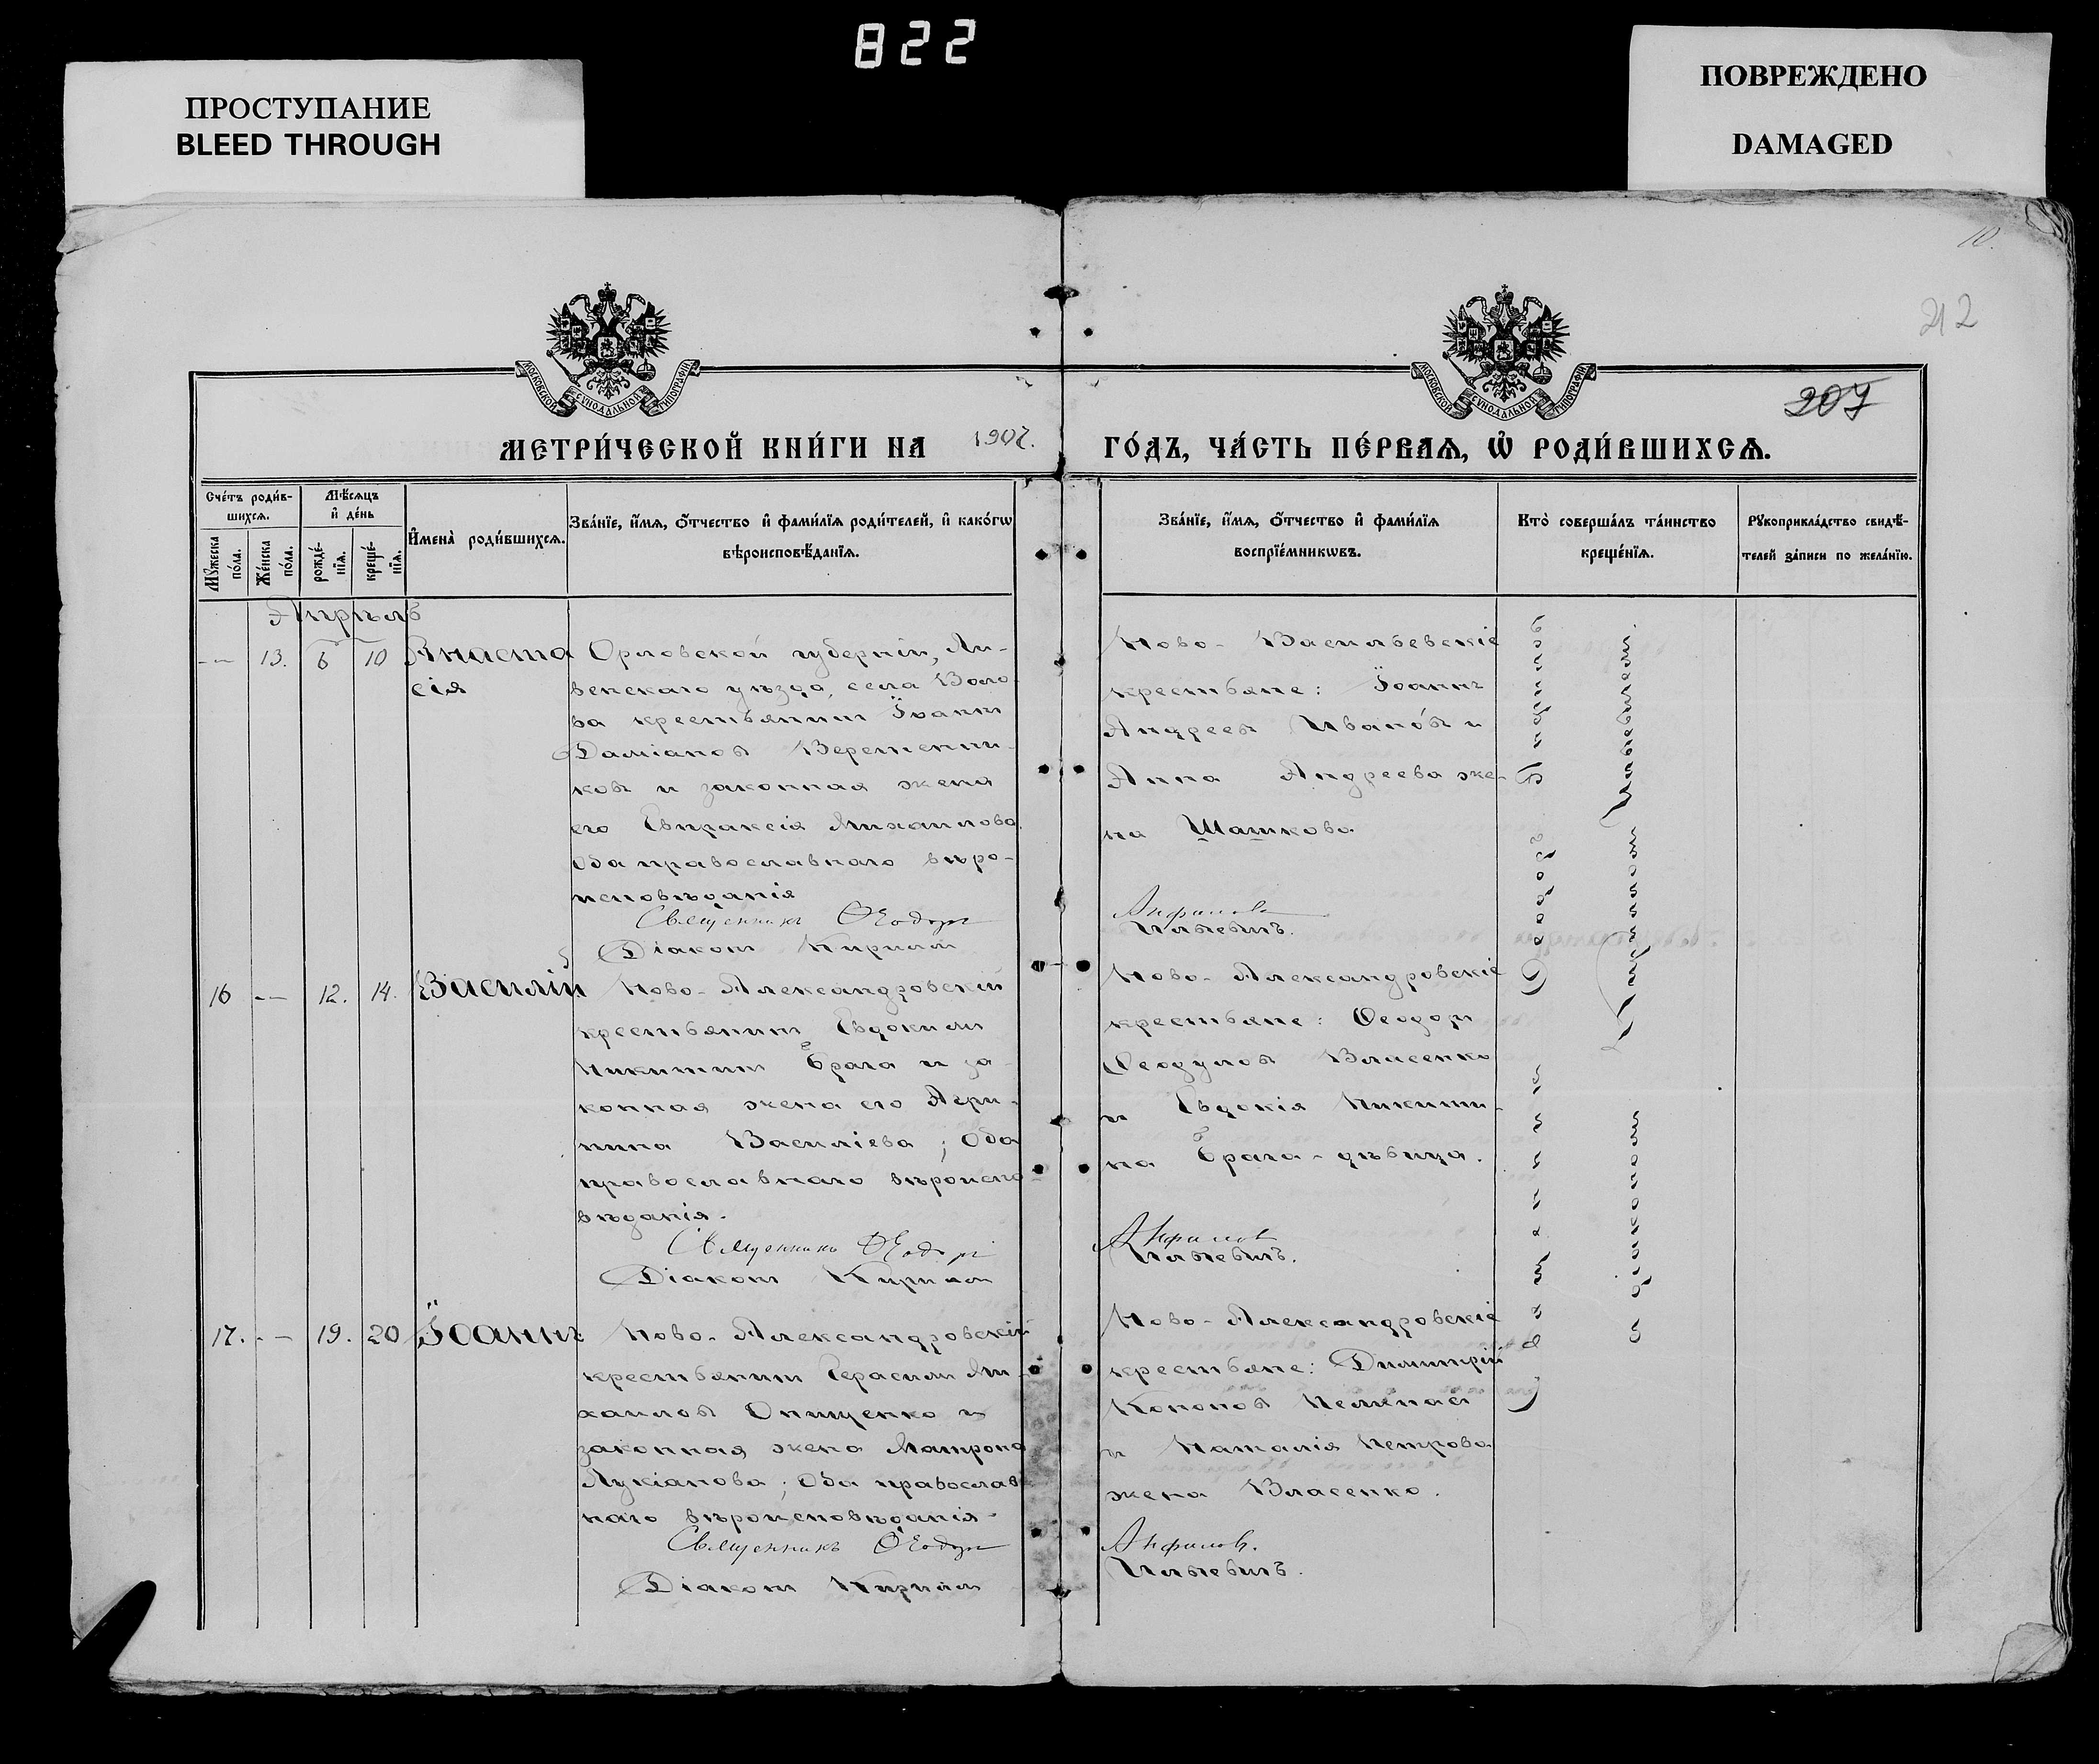 822
ПРОСТУПАНИЕ
BLEED THROUGH
ПОВРЕЖДЕНО
DAMAGED
10.
212
207
МОСКОВСКОЙ СѴНОДАЛЬНОЙ ТИПОГРАФІИ
МОСКОВСКОЙ СѴНОДАЛЬНОЙ ТИПОГРАФІИ
МЕТРИ́ЧЕСКОЙ КНИ́ГИ НА 1907. ГО́ДЪ, ЧА́СТЬ ПЕ́РВАѦ, Ѡ҆ РОДИ́ВШИХСѦ.
Сче́тъ роди́в-
шихсѧ.
Мꙋжеска по́ла.
Же́нска по́ла.
Мѣ́сѧцъ и҆ де́нь
рожде́-нїѧ.
креще́-нїѧ.
И҆мена̀ роди́вшихсѧ.
Зва́нїе, и҆́мѧ, ѻ҆́тчество и҆ фами́лїѧ роди́телей, и҆ како́гѡ
вѣроисповѣ́данїѧ.
Зва́нїе, и҆́мѧ, ѻ҆́тчество и҆ фами́лїѧ
воспрїе́мникѡвъ.
Кто̀ соверша́лъ та́инство
креще́нїѧ.
Рꙋкоприкла́дство свидѣ́-
телей за́писи по жела́нїю.
Апрѣль
-- 13. 6 10 Анаста
сія
Орловской губерніи, Ли-
венскаго уѣзда, села Воло-
ва крестьянинъ Іоаннъ
Даміановъ Веретенни-
ковъ и законная жена
его Евпраксія Михаилова.
Оба православнаго вѣро-
исповѣданія
Священникъ Ѳеодоръ
Діаконъ Кириллъ
Ново-Васильевскіе
крестьяне: Іоаннъ
Андреевъ Ивановъ и
Анна Андреева же-
на Шашкова.
Анфиловъ
Ильевичъ.
16 -- 12. 14. Василій
Ново-Александровскій
крестьянинъ Евдокимъ
Никитинъ Брага и за-
конная жена его Агри-
пина Василіева; Оба
православнаго вѣроиспо-
вѣданія.
Священникъ Ѳеодоръ
Діаконъ Кириллъ
Ново-Александровскіе
крестьяне: Ѳеодоръ
Ѳеодуловъ Власенко
и Евдокія Никити-
на Брага-дѣвица.
Анфиловъ
Ильевичъ.
17. -- 19. 20 Іоаннъ
Ново-Александровскій
крестьянинъ Герасимъ Ми-
хаиловъ Онищенко и
законная жена Матрона
Лукіанова; Оба православ-
наго вѣроисповѣданія.
Священникъ Ѳеодоръ
Діаконъ Кириллъ
Ново-Александровскіе
крестьяне: Димитрій
Кононовъ
и Наталія Петрова
жена Власенко.
Анфиловъ.
Ильевичъ.
Священникъ Ѳеодоръ Анфиловъ
съ діакономъ Кирилломъ Ильевичемъ.